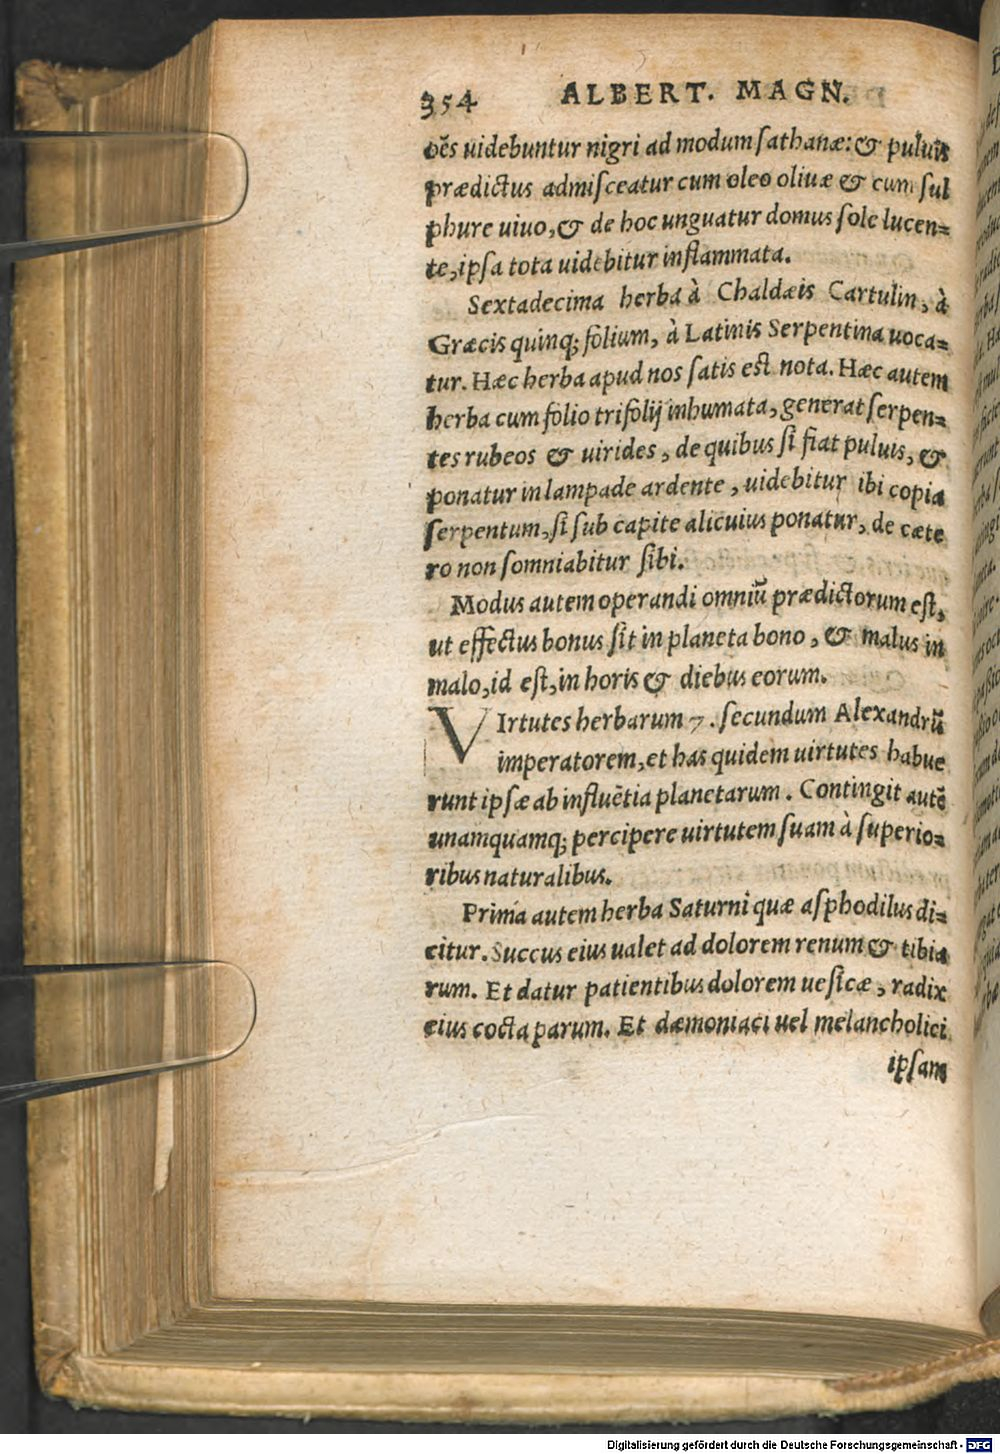 354 ALBERT. MAGN.
oēs uidebuntur nigri ad modum sathanæ: & puluis
prædictus admisceatur cum oleo oliuæ & cum sul
phure uiuo, & de hoc unguatur domus sole lucen=
te, ipsa tota uidebitur inflammata.
Sextadecima herba à Chaldæis Cartulin, à
Græcis quinq; folium, à Latinis Serpentina uoca=
tur. Hæc herba apud nos satis est nota. Hæc autem
herba cum folio trifolij inhumata, generat serpen=
tes rubeos & uirides, de quibus si fiat puluis, &
ponatur in lampade ardente, uidebitur ibi copia
serpentum, si sub capite alicuius ponatur, de cæte
ro non somniabitur sibi.
Modus autem operandi omniū prædictorum est,
ut effectus bonus sit in planeta bono, & malus in
malo, id est, in horis & diebus eorum.
VIrtutes herbarum 7. secundum Alexandrū
imperatorem, et has quidem uirtutes habue
runt ipsæ ab influētia planetarum. Contingit autē
unamquamq; percipere uirtutem suam à superio=
ribus naturalibus.
Prima autem herba Saturni quæ asphodilus di=
citur. Succus eius ualet ad dolorem renum & tibia
rum. Et datur patientibus dolorem uesicæ, radix
eius cocta parum. Et dæmoniaci uel melancholici
ipsam
Digitalisierung gefördert durch die Deutsche Forschungsgemeinschaft - DFG